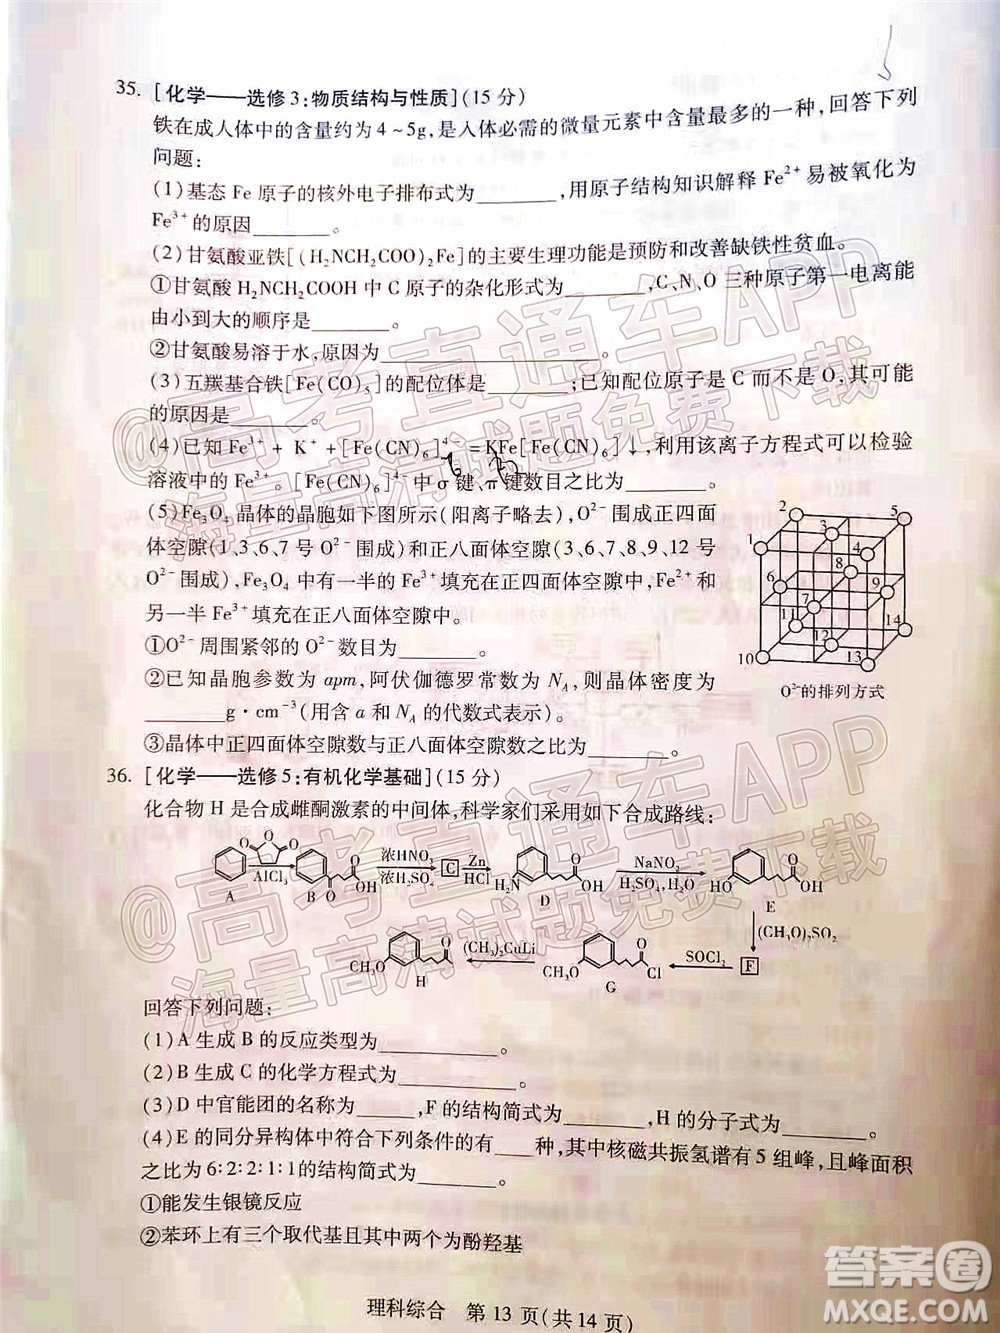 35. [化学——选修3:物质结构与性质](15分)
铁在成人体中的含量约为4~5g,是人体必需的微量元素中含量最多的一种,回答下列
问题:
(1)基态Fe原子的核外电子排布式为________,用原子结构知识解释Fe²⁺易被氧化为
Fe³⁺的原因________。
(2)甘氨酸亚铁[(H₂NCH₂COO)₂Fe]的主要生理功能是预防和改善缺铁性贫血。
①甘氨酸H₂NCH₂COOH中C原子的杂化形式为________,C、N、O三种原子第一电离能
由小到大的顺序是________。
②甘氨酸易溶于水,原因是________。
(3)五羰基合铁[Fe(CO)₅]的配位体是________;已知配位原子是C而不是O,其可能
的原因是________。
(4)已知Fe³⁺+K⁺+[Fe(CN)₆]⁴⁻=KFe[Fe(CN)₆]↓,利用该离子方程式可以检验
溶液中Fe³⁺。[Fe(CN)₆]⁴⁻中σ键、π键数目之比为________。
(5)Fe₃O₄晶体的晶胞如下图所示(阳离子略去),O²⁻围成正四面
体空隙(1、3、6、7号O²⁻围成)和正八面体空隙(3、6、7、8、9、12号
O²⁻围成),Fe₃O₄中有一半的Fe³⁺填充在正四面体空隙中,Fe²⁺和
另一半Fe³⁺填充在正八面体空隙中。
①O²⁻周围紧邻的O²⁻数目为________。
②已知晶胞参数为apm,阿伏伽德罗常数为N_A,则晶体密度为
________g·cm⁻³(用含a和N_A的代数式表示)。
③晶体中正四面体空隙数与正八面体空隙数之比为________。
1
2
3
4
5
6
7
8
9
10
11
12
13
14
O²⁻的排列方式
36. [化学——选修5:有机化学基础](15分)
化合物H是合成雌酮激素的中间体,科学家们采用如下合成路线:
A
AlCl₃
B
浓HNO₃
浓H₂SO₄
C
Zn
HCl
D
NaNO₂
H₂SO₄,H₂O
E
(CH₃)₂SO₂
F
SOCl₂
G
(CH₃)₂CuLi
H
回答下列问题:
(1)A生成B的反应类型为________。
(2)B生成C的化学方程式为________。
(3)D中官能团的名称为________,F的结构简式为________,H的分子式为________。
(4)E的同分异构体中符合下列条件的有____种,其中核磁共振氢谱有5组峰,且峰面积
之比为6:2:2:1:1的结构简式为________。
①能发生银镜反应
②苯环上有三个取代基且其中两个为酚羟基
理科综合 第13页(共14页)
@高考直通车APP
海量高清试题免费下载
@高考直通车APP
海量高清试题免费下载
答案圈
MXQE.COM